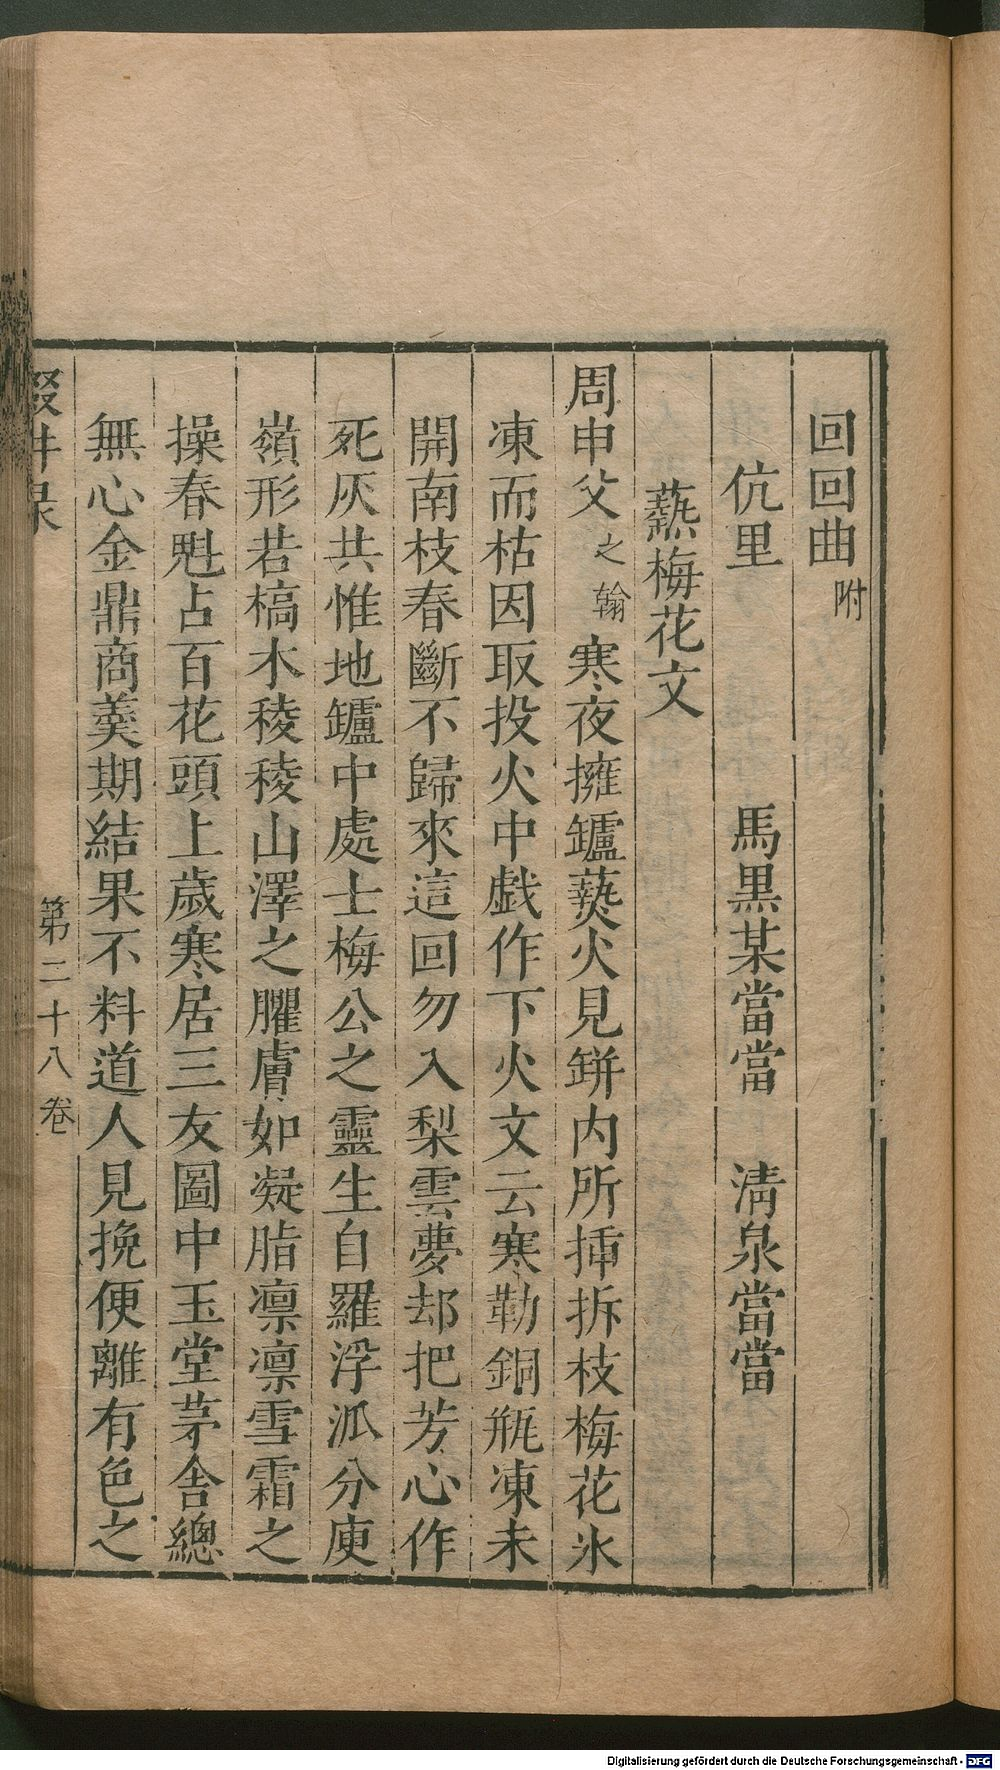 回回曲附
伉里 馬黒某當當 清泉當當
爇梅花文
周申父之翰寒夜擁鑪爇火見缾内所挿拆枝梅花氷
凍而枯因取投火中戯作下火文云寒勒銅瓶凍未
開南枝春斷不歸來這回勿入梨雲夢却把芳心作
死灰共惟地鑪中處士梅公之靈生自羅浮派分庾
嶺形若槁木稜稜山澤之臞膚如凝脂凛凛雪霜之
操春魁占百花頭上歲寒居三友圖中玉堂茅舎總
無心金鼎商羮期結果不料道人見挽便離有色之
第二十八卷
Digitalisierung gefördert durch die Deutsche Forschungsgemeinschaft - DFG